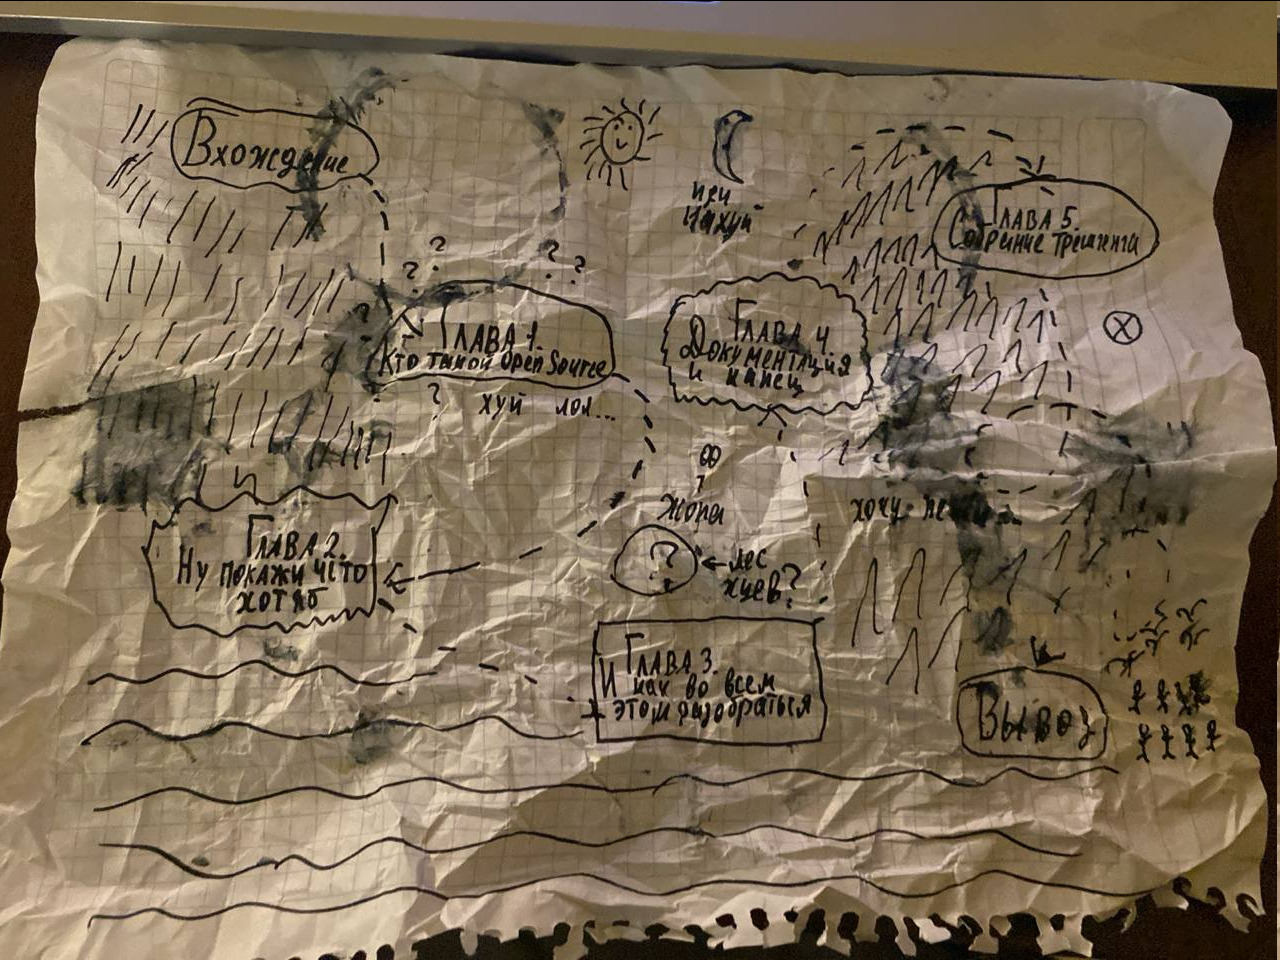 Вхождение
иди
нахуй
Глава 5.
Собрание трешгенга
? ? ? ?
?
Глава 1.
Кто такой Open Source
?
хуй лол...
Глава 4.
Документация
и капец
Жопа
?
лес
хуев?
хочу
Глава 2.
Ну покажи чё то
хотяб
Глава 3.
И как во всем
этом разобраться
Вывоз